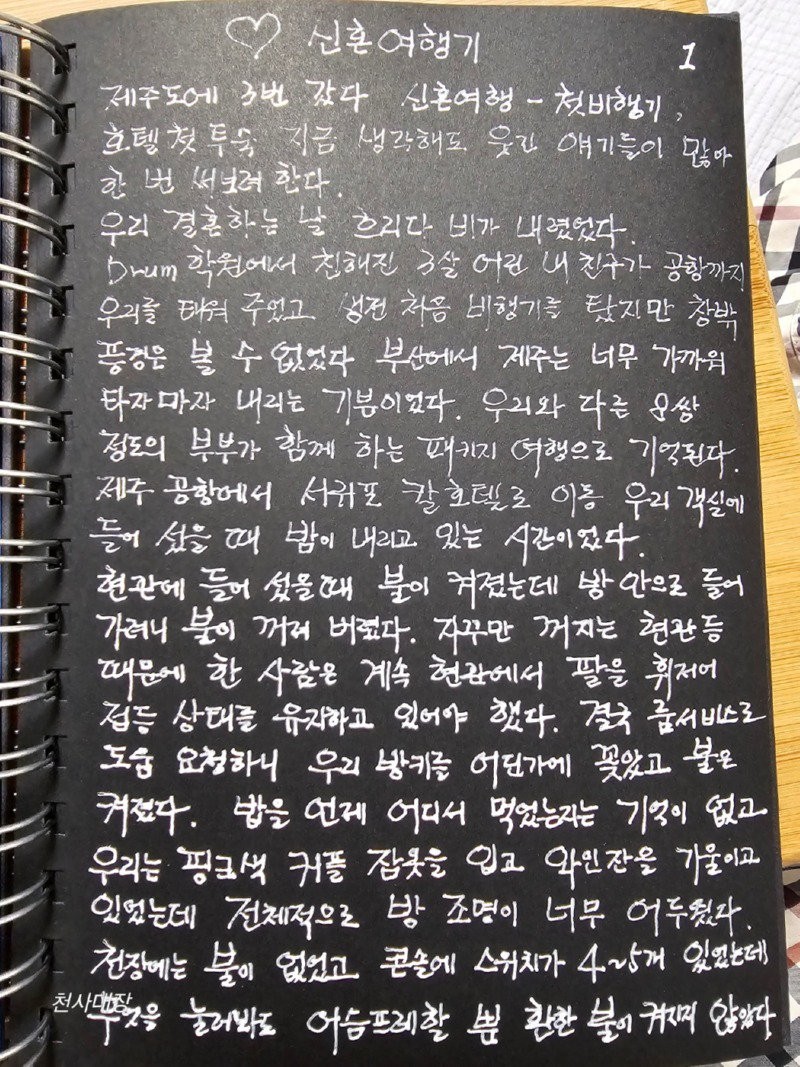 ♡ 신혼여행기 1
제주도에 3번 갔다 신혼여행 - 첫비행기,
호텔 첫 투숙 지금 생각해도 웃긴 얘기들이 많아
한 번 써보려 한다.
우리 결혼하는 날 흐리다 비가 내렸었다.
Drum 학원에서 친해진 3살 어린 내 친구가 공항까지
우리를 태워 주었고 생전 처음 비행기를 탔지만 창밖
풍경은 볼 수 없었다 부산에서 제주는 너무 가까워
타자마자 내리는 기분이었다. 우리와 다른 8쌍
정도의 부부가 함께 하는 패키지 여행으로 기억된다.
제주 공항에서 서귀포 칼호텔로 이동 우리 객실에
들어 섰을 때 밤이 내리고 있는 시간이었다.
현관에 들어 섰을때 불이 켜졌는데 방 안으로 들어
가려니 불이 꺼져 버렸다. 자꾸만 꺼지는 현관등
때문에 한 사람은 계속 현관에서 팔을 휘저어
점등 상태를 유지하고 있어야 했다. 결국 룸서비스로
도움 요청하니 우리 방키를 어딘가에 꽂았고 불은
켜졌다. 밥을 언제 어디서 먹었는지는 기억이 없고
우리는 핑크색 커플 잠옷을 입고 와인잔을 기울이고
있었는데 전체적으로 방 조명이 너무 어두웠다.
천장에는 불이 없었고 콘솔에 스위치가 4~5개 있었는데
무엇을 눌러봐도 어슴프레할 뿐 환한 불이 켜지지 않았다
천사대장